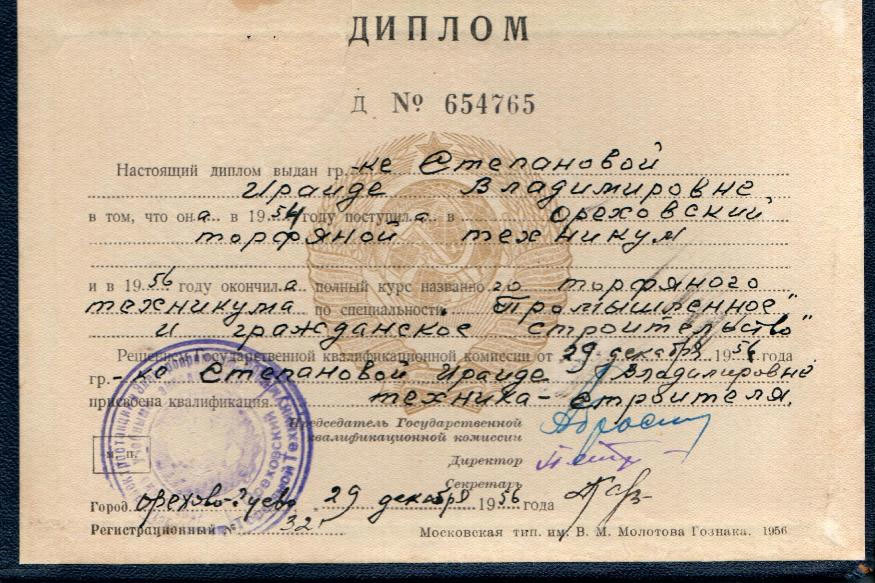 ДИПЛОМ
Д № 654765
Настоящий диплом выдан гр.-ке Степановой
Ираиде Владимировне
в том, что она в 1954 году поступила в Ореховский
торфяной техникум
и в 1956 году окончила полный курс названного торфяного
техникума по специальности "Промышленное"
и гражданское строительство"
Решением Государственной квалификационной комиссии от 29 декабря 1956 года
гр.-ка Степановой Ираиде Владимировне
присвоена квалификация техника-строителя.
Председатель Государственной
квалификационной комиссии
Директор
м. п.
Секретарь
Город Орехово-Зуево 29 декабря 1956 года
Регистрационный № 32
Московская тип. им. В. М. Молотова Гознака. 1956